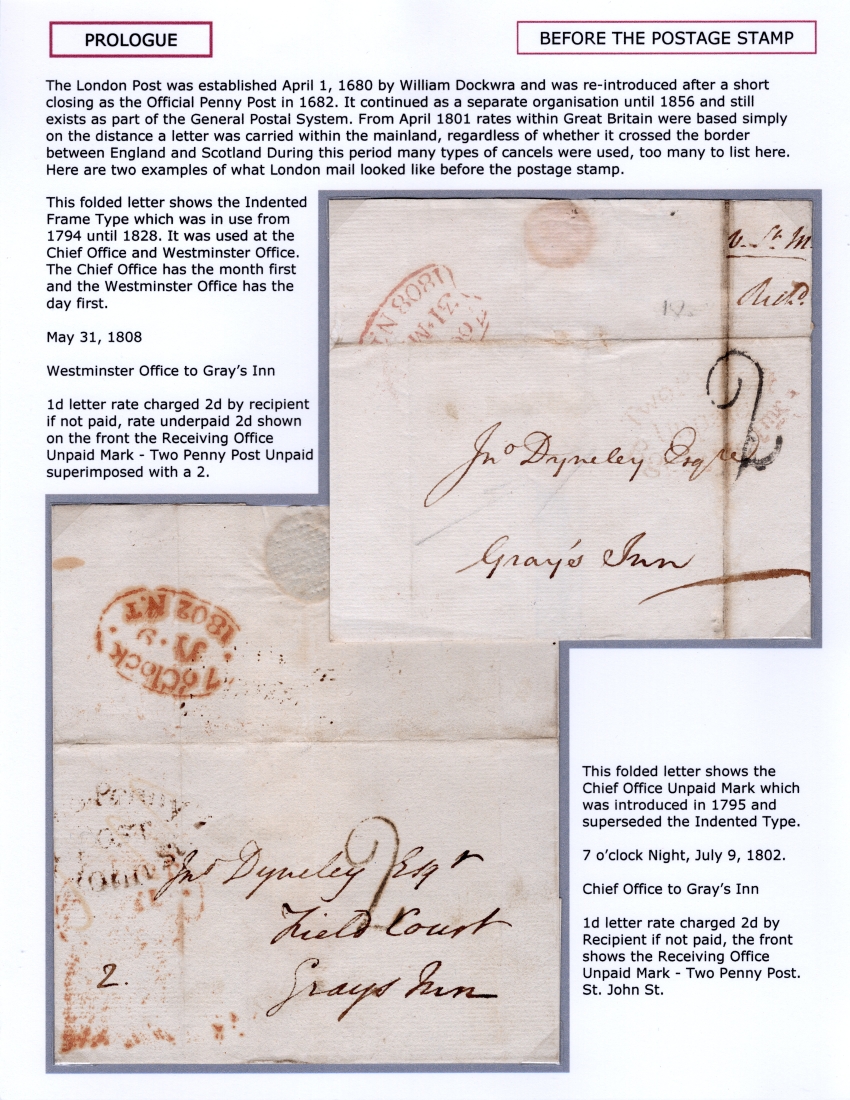 PROLOGUE
BEFORE THE POSTAGE STAMP
The London Post was established April 1, 1680 by William Dockwra and was re-introduced after a short
closing as the Official Penny Post in 1682. It continued as a separate organisation until 1856 and still
exists as part of the General Postal System. From April 1801 rates within Great Britain were based simply
on the distance a letter was carried within the mainland, regardless of whether it crossed the border
between England and Scotland During this period many types of cancels were used, too many to list here.
Here are two examples of what London mail looked like before the postage stamp.
This folded letter shows the Indented
Frame Type which was in use from
1794 until 1828. It was used at the
Chief Office and Westminster Office.
The Chief Office has the month first
and the Westminster Office has the
day first.
May 31, 1808
Westminster Office to Gray's Inn
1d letter rate charged 2d by recipient
if not paid, rate underpaid 2d shown
on the front the Receiving Office
Unpaid Mark - Two Penny Post Unpaid
superimposed with a 2.
1808
31
2
Jno Dyneley Esqre
Gray's Inn
7 oClock
JY 9
1802 N.T
Penny
POST
John St
Jno Dyneley Esqr
Field Court
Grays Inn
2.
This folded letter shows the
Chief Office Unpaid Mark which
was introduced in 1795 and
superseded the Indented Type.
7 o'clock Night, July 9, 1802.
Chief Office to Gray's Inn
1d letter rate charged 2d by
Recipient if not paid, the front
shows the Receiving Office
Unpaid Mark - Two Penny Post.
St. John St.